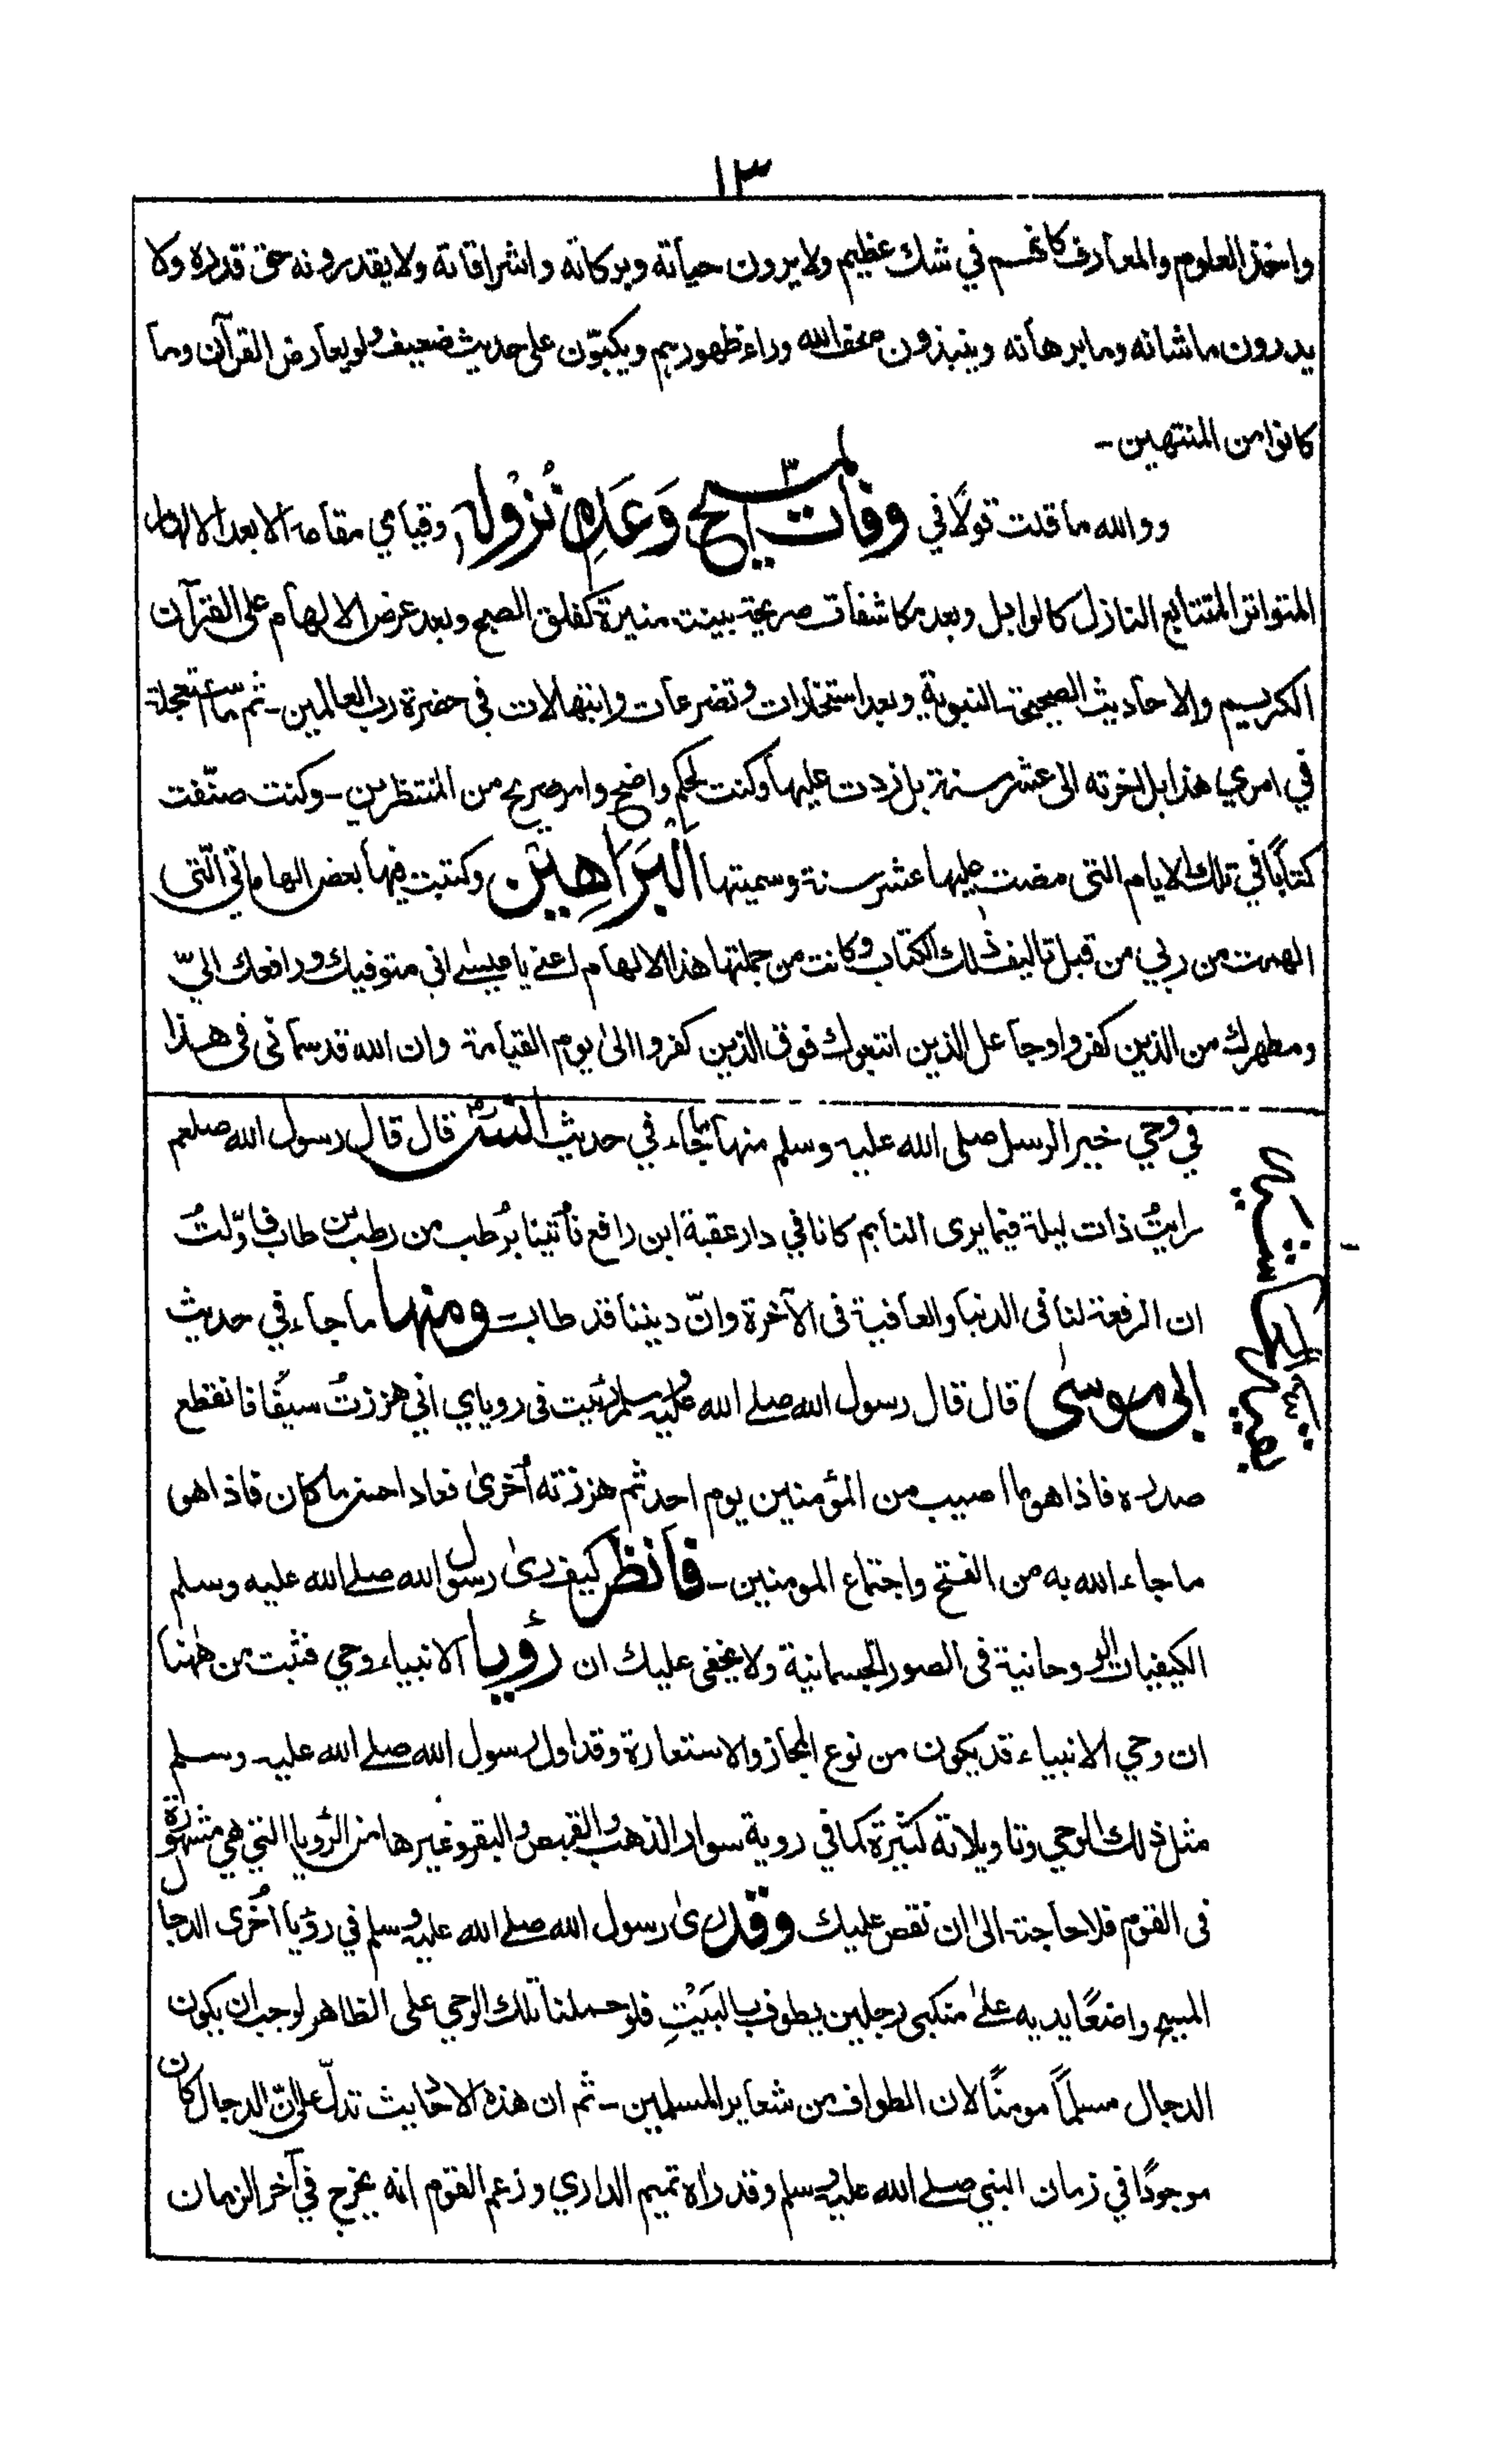 ١٣
واخذ العلوم والمعارف كانهم في شك عظيم ولا يرون حياته وبركاته واشراقاته ولا يقدرونه حق قدره ولا
يدرون ما شانه وما برهانه وينبذون صحف الله وراء ظهورهم ويكبّون على حديث ضعيف ولو يعارض القرآن وما
كانوا من المنتهين-
ووالله ما قلت قولًا في وفات المسيح وَعَدِم نُزُولِه وقيامي مقامه الا بعد الالهام
المتواتر المتتابع النازل كالوابل وبعد مكاشفات صريحة بينت منيرة كفلق الصبح وبعد عرض الالهام على القرآن
الكريم والاحاديث الصحيحة النبوية وبعد استخارات وتضرعات وابتهالات في حضرة رب العالمين- ثم ما استعجلت
في امري هذا بل اخرته الى عشر سنة بل زدت عليها وكنت لحكم واضح وامر صريح من المنتظرين- وكنت صنّفت
كتابًا في تلك الايام التى مضت عليها عشر سنة وسميتها البَرَاهِين وكتبت فيها بعض الهاماتي الّتى
الهمت من ربي من قبل تاليف ذلك الكتاب وكانت من جملتها هذا الالهام اعنے يا عيسٰے اني متوفيك ورافعك اليّ
ومطهرك من الذين كفروا وجاعل الذين اتبعوك فوق الذين كفروا الىٰ يوم القيامة وان الله قد سماني فى هذا
في وحي خير الرسل صلى الله عليه وسلم منها ما جاء في حديث انس قال قال رسول الله صلعم
رايتُ ذات ليلة فيما يرى النايم كانا في دار عقبة ابن رافع فأتينا برُطب من رطب بن طاب فاوّلتُ
ان الرفعة لنا فى الدنيا والعافية فى الآخرة وانّ ديننا قد طاب- ومنها ما جاء في حديث
ابى موسٰى قال قال رسول الله صلے الله عليه وسلم رئيت فى روياي اني هززتُ سيفًا فانقطع
صدره فاذا هو ما اصيب من المؤمنين يوم احد ثم هززته اُخرىٰ فعاد احسن ما كان فاذا هو
ما جاء الله به من الفتح واجتماع المومنين- فانظر كيف رىٰ رسول الله صلے الله عليه وسلم
الكيفيات الروحانية فى الصور الجسمانية ولا يخفى عليك ان رؤيا الانبياء وحي فثبت من ههنا
ان وحي الانبياء قد يكون من نوع المجاز والاستعارة وقد اول رسول الله صلے الله عليه وسلم
مثل ذلك الوحي وتاويلاته كثيرة كما في روية سوار الذهب والقميص والبقر وغيرها من الرؤيا التي هي مشهورة
فى القوم فلا حاجة الىٰ ان نقص عليك وقد رىٰ رسول الله صلے الله عليه وسلم في رؤيا اُخرى الدجال
المسيح واضعًا يديه علىٰ منكبى رجلين يطوف بالبَيْتِ فلو حملنا تلك الوحي على الظاهر لوجب ان يكون
الدجال مسلمًا مومنًا لان الطواف من شعاير المسلمين- ثم ان هذه الاحاديث تدلّ على انّ الدجال كان
موجودًا في زمان النبي صلے الله عليه وسلم وقد راه تميم الداري وزعم القوم انه يخرج في آخر الزمان